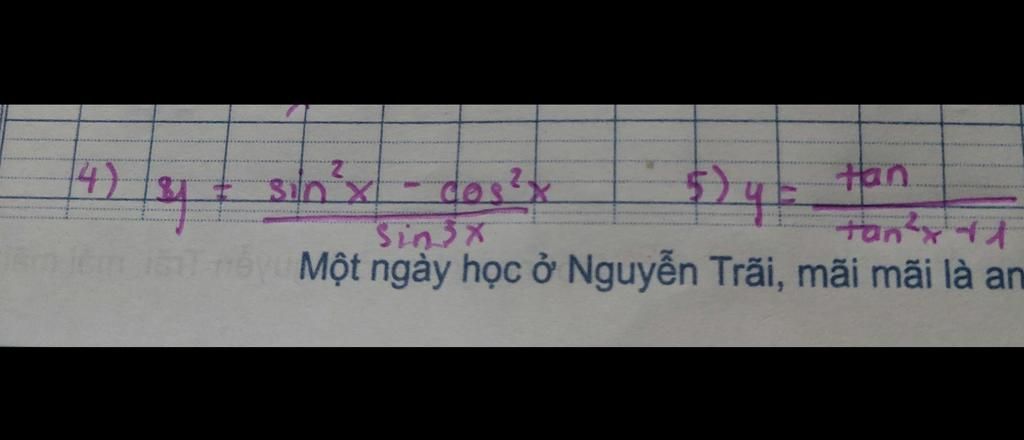 4) y = sin²x - cos²x 5) y = tan
sin3x tan²x + 1
Một ngày học ở Nguyễn Trãi, mãi mãi là an